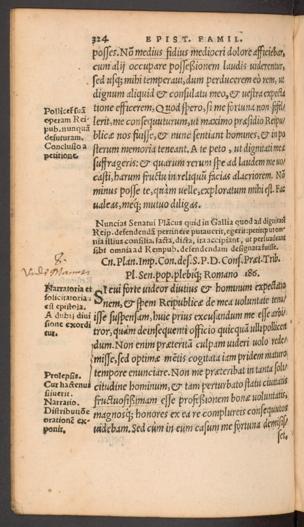 324 EPIST. FAMIL.
posses. Nō medius fidius mediocri dolore afficiebar,
cum alij occupare possessionem laudis viderentur,
sed usq; mihi temperaui, dum perducerem eò rem, ut
dignum aliquid & consulatu meo, & uestra expecta
tione efficerem. Quod spero, si me fortuna non fefel
lerit, me consequuturum, ut maximo præsidio Reipu
blicæ nos fuisse, & nunc sentiant homines, & in po
sterum memoria teneant. A te peto, ut dignitati meæ
suffrageris: & quarum rerum spe ad laudem me uo
casti, harum fructu in reliquū facias alacriorem. Nō
minus posse te, quàm uelle, exploratum mihi est. Fac
ualeas, meq; mutuo diligas.
Pollicet suā
operam Rei
pub. nunquā
defuturam.
Conclusio a
petitione.
Nunciat Senatui Plācus quid in Gallia quod ad dignitatē
Reip. defendendā pertinere putauerit, egerit:
nia illius consilia, facta, dicta, ita accipiant, ut
sibi omnia ad Rempub. defendendam
Cn. Plan. Imp. Con. des. S. P. D. Cons. Præt. Trib.
Pl. Sen. pop. plebiq; Romano 186.
Si cui forte uideor diutius & hominum expectatio
nem, & spem Reipublicæ de mea uoluntate tenu
isse suspensam, huic prius excusandum me esse arbi
tror, quàm de insequenti officio quicquā ulli pollicen
dum. Non enim præteritā culpam uideri uolo rede
misse, sed optimæ mētis cogitata iam pridem maturo
tempore enunciare. Non me præteribat in tanta soli
citudine hominum, & tam perturbato statu ciuitatis
fructuosissimam esse professionem bonæ uoluntatis,
magnosq; honores ex ea re complureis consequutos
uidebam. Sed cùm in eum casum me fortuna demisis
set,
Narratoria et
solicitatoria
est epistola.
A dubij diui
sione exordi
tur.
Prolepsis.
Cur hactenus
siluerit.
Narratio.
Distributiōe
orationē ex-
ponit.